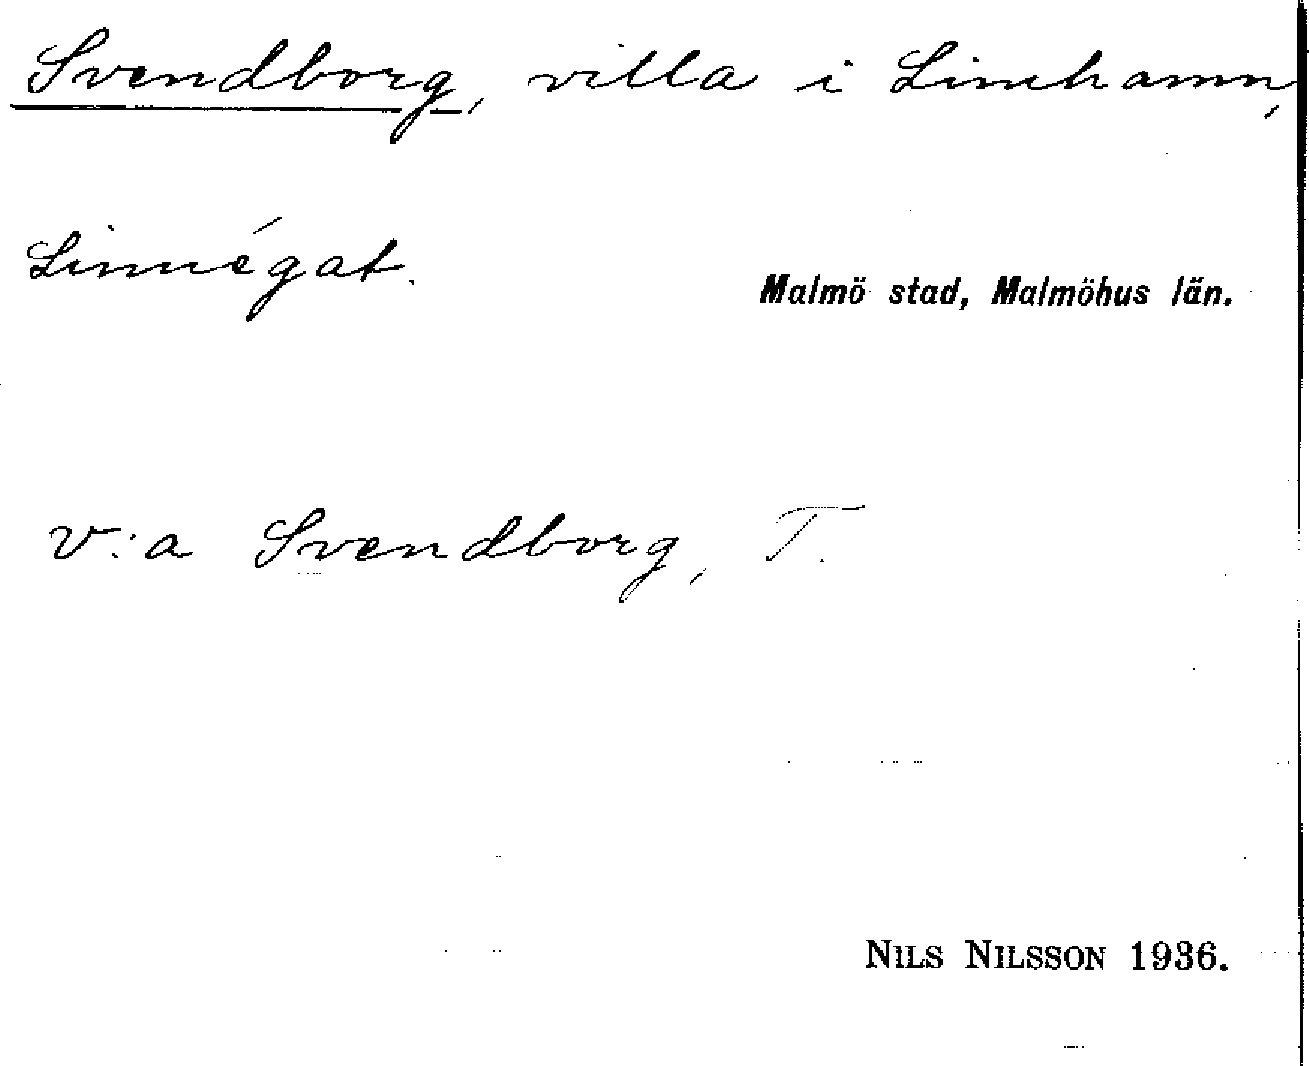 Svendborg, villa i Limhamn,
Linnégat.
Malmö stad, Malmöhus län.
V:a Svendborg, T.
NILS NILSSON 1936.